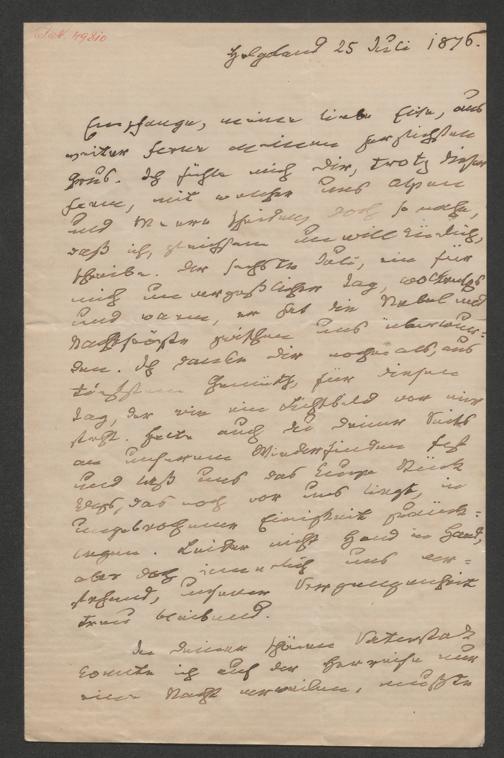 Helgoland 25 Juli 1876.
Empfange, meine liebe Elise, aus
weiter Ferne meinen herzlichsten
Gruß. Ich fühle mich Dir, trotz dieser
Fern, mit welcher uns Alpen
und Meere scheiden, doch so nahe,
daß ich, gleichsam unwillkürlich,
schreibe. Der sechste Juli, ein für
mich unvergeßlicher Tag,
und warm, er hat die Nebel und
Nachtfröste zwischen uns überwun-
den. Ich danke Dir nochmals, aus
Gemüth, für diesen
Tag, der wie ein Lichtbild vor mir
steht. Halte auch Du Deiner Seits
an unserem Wiederfinden fest
und laß uns das Stück
Weges, das noch vor uns liegt, in
ungebrochener Einigkeit zurück-
legen. Leider nicht Hand in Hand,
aber doch innerlich uns ver-
stehend, unserer Vergangenheit
treu bleibend.
In Deiner schönen Vaterstadt
konnte ich auf der Herreise nur
eine Nacht verweilen, mußte